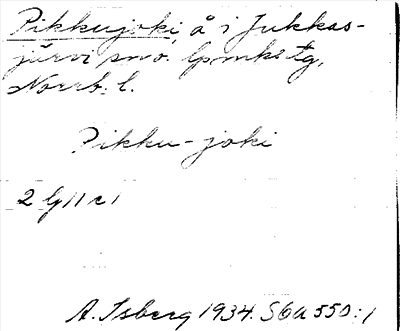 Pikkujoki, å i Jukkas-
järvi sn o. lpmks tg,
Norrb. l.
Pikku-joki
2 G11 c1
A. Isberg 1934. S6a 550:1